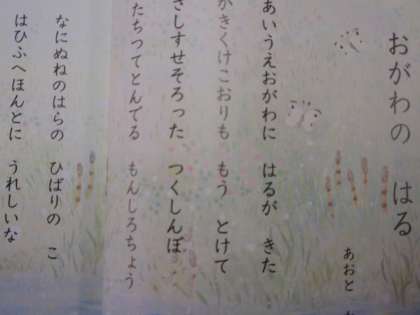 おがわの はる
あおと
あいうえおがわに はるが きた
かきくけこおりも もう とけて
さしすせそろった つくしんぼ
たちつてとんでる もんしろちょう
なにぬねのはらの ひばりの こ
はひふへほんとに うれしいな